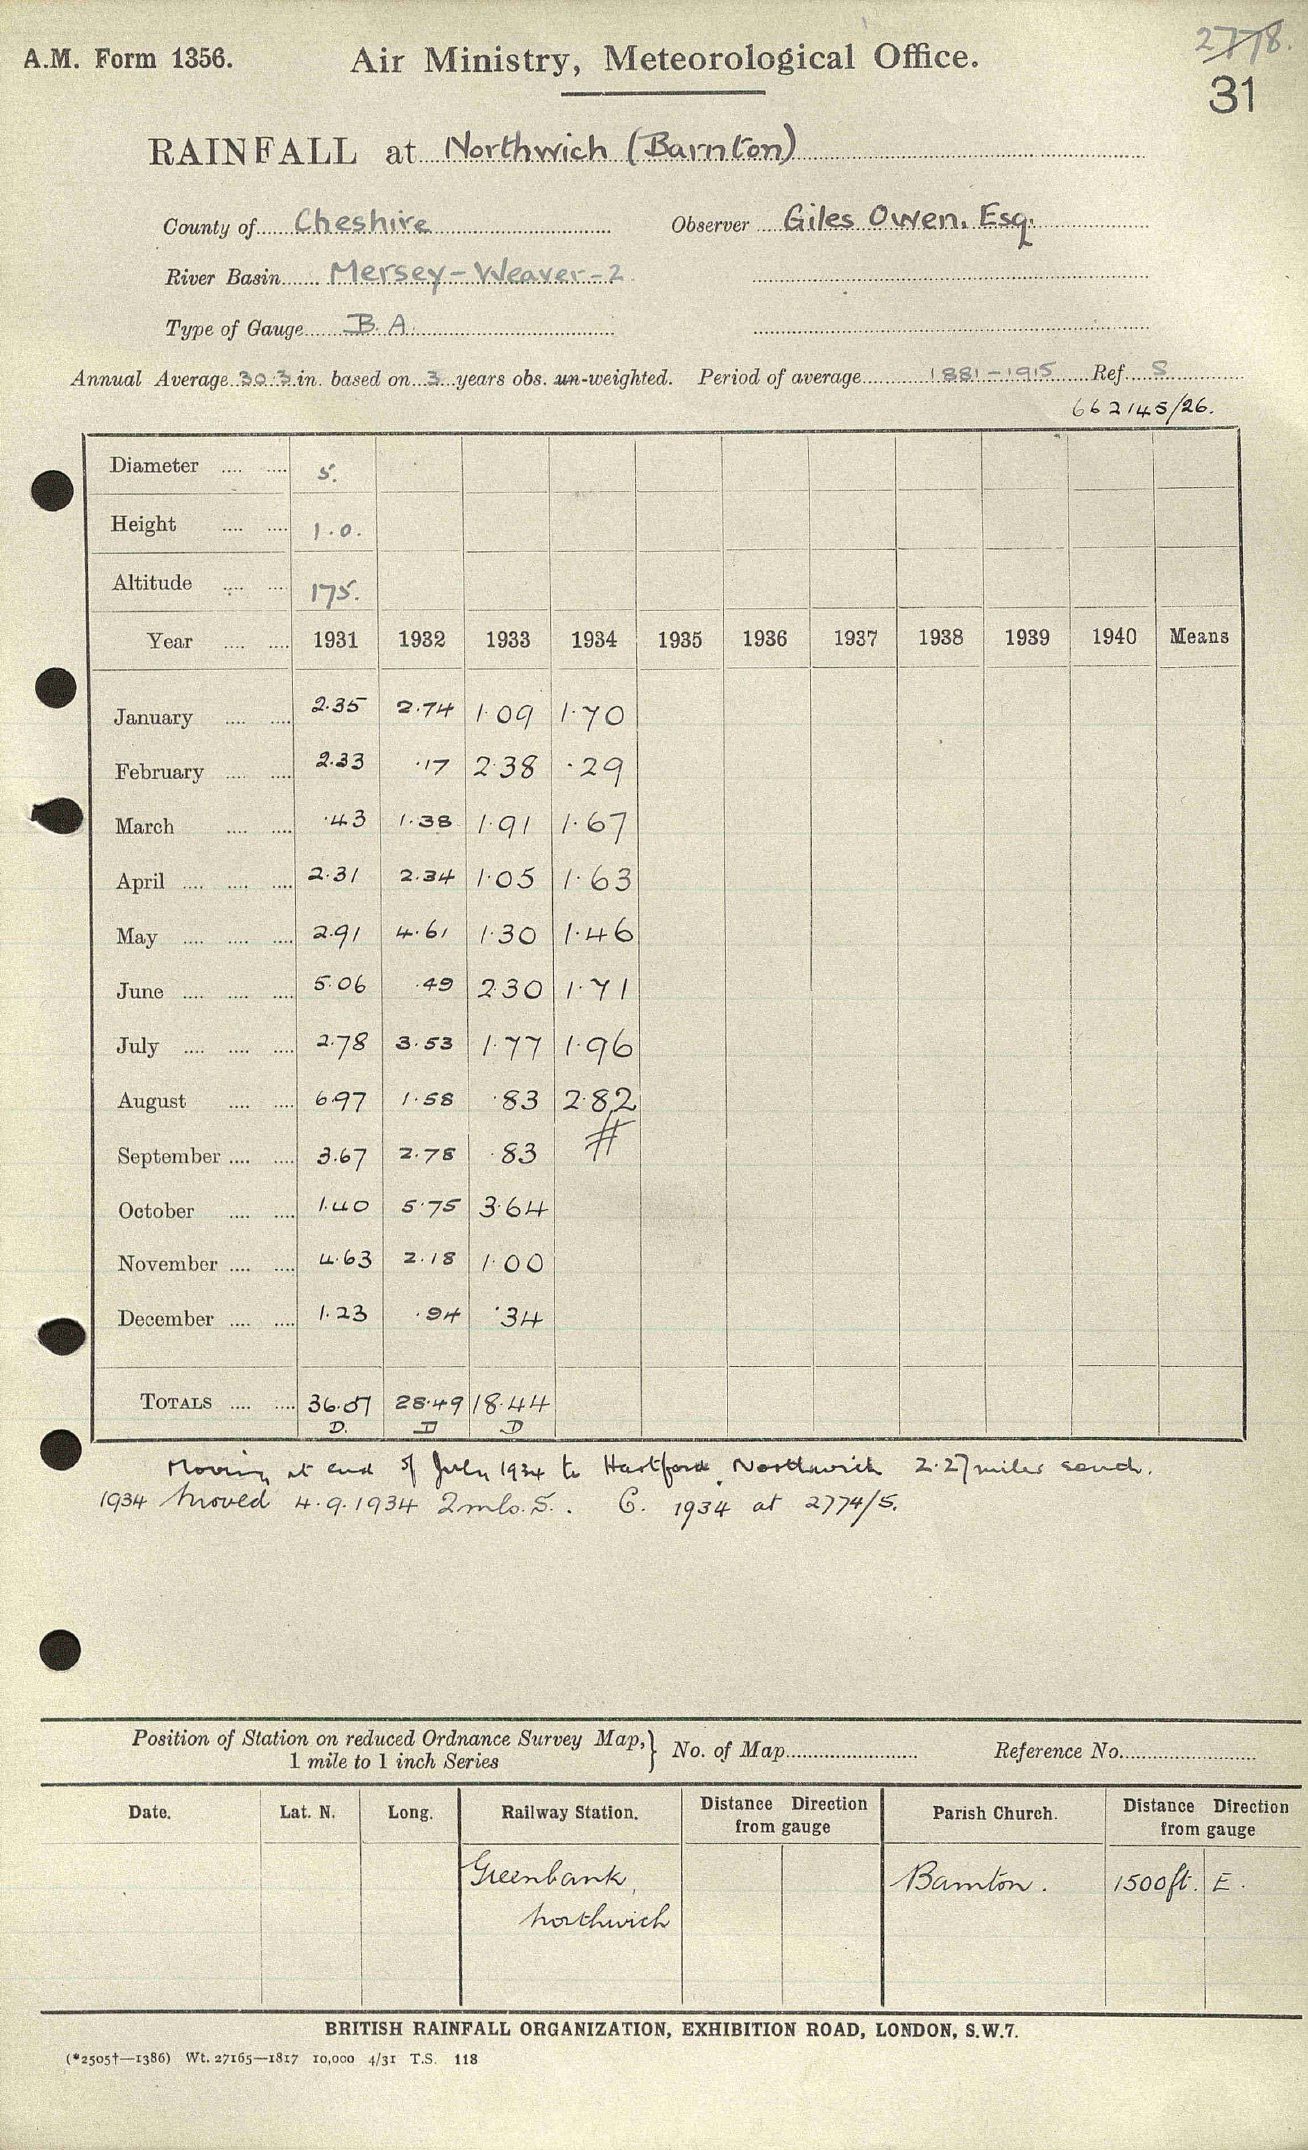 2778.
A.M. Form 1356. Air Ministry, Meteorological Office.
31
RAINFALL at Northwich (Barnton)
County of Cheshire Observer Giles Owen, Esq.
River Basin Mersey-Weaver-2
Type of Gauge B.A.
Annual Average 30.3 in. based on 3 years obs. un-weighted. Period of average 1881-1915 Ref. S
662145/26.
Diameter 5.
Height 1.0.
Altitude 175.
Year 1931 1932 1933 1934 1935 1936 1937 1938 1939 1940 Means
January 2.35 2.74 1.09 1.70
February 2.33 .17 2.38 .29
March .43 1.38 1.91 1.67
April 2.31 2.34 1.05 1.63
May 2.91 4.61 1.30 1.46
June 5.06 .49 2.30 1.71
July 2.78 3.53 1.77 1.96
August 6.97 1.58 .83 2.82
September 3.67 2.78 .83 #
October 1.40 5.75 3.64
November 4.63 2.18 1.00
December 1.23 .94 .34
TOTALS 36.07 28.49 18.44
D. D D
Moving at end of July 1934 to Hartford, Northwich 2.27 miles south.
1934 Moved 4.9.1934 2mls. S. . C. 1934 at 2774/5.
Position of Station on reduced Ordnance Survey Map, } No. of Map Reference No.
1 mile to 1 inch Series
Date. Lat. N. Long. Railway Station. Distance Direction from gauge Parish Church. Distance Direction from gauge
Greenbank, Barnton. 1500ft. E.
Northwich
BRITISH RAINFALL ORGANIZATION, EXHIBITION ROAD, LONDON, S.W.7.
(*2505†—1386) Wt. 27165—1817 10,000 4/31 T.S. 118